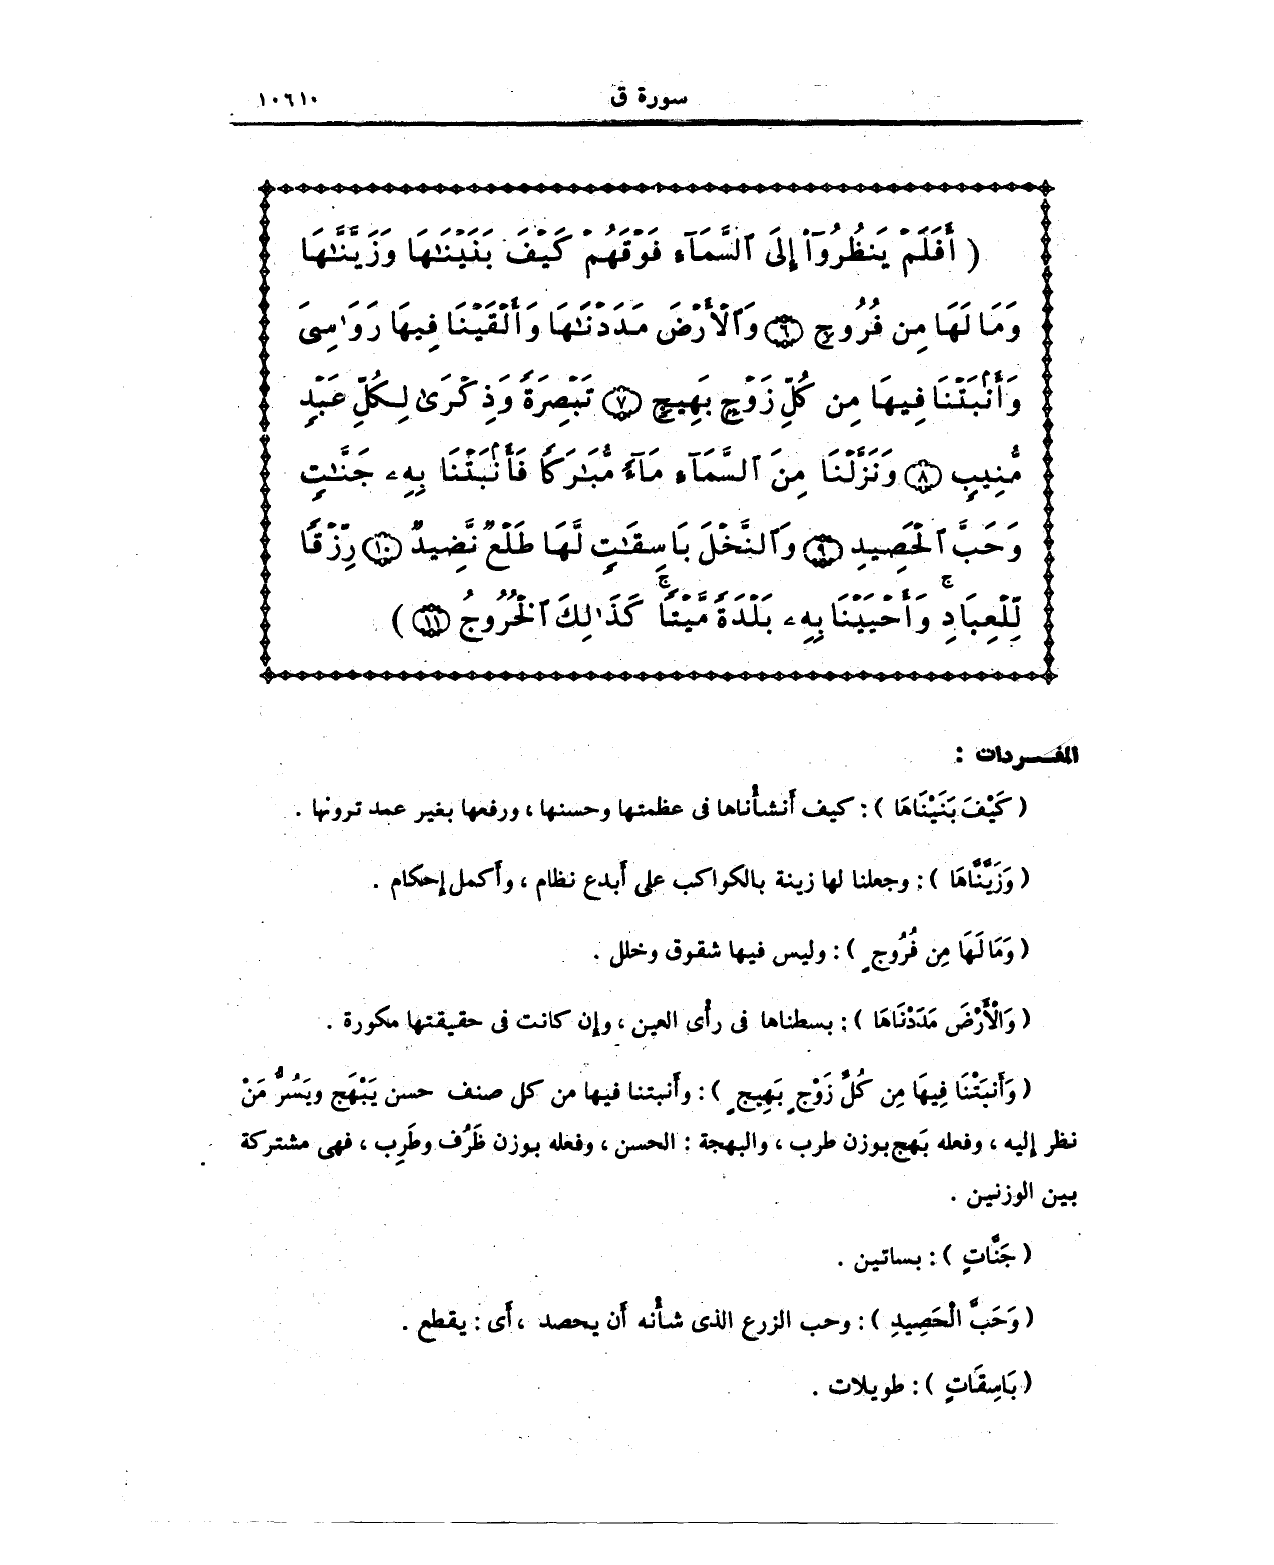 سورة ق ١٠٦١٠
( أَفَلَمْ يَنظُرُوٓا۟ إِلَى ٱلسَّمَآءِ فَوْقَهُمْ كَيْفَ بَنَيْنَـٰهَا وَزَيَّنَّـٰهَا
وَمَا لَهَا مِن فُرُوجٍ ٦ وَٱلْأَرْضَ مَدَدْنَـٰهَا وَأَلْقَيْنَا فِيهَا رَوَٰسِىَ
وَأَنۢبَتْنَا فِيهَا مِن كُلِّ زَوْجٍۭ بَهِيجٍ ٧ تَبْصِرَةً وَذِكْرَىٰ لِكُلِّ عَبْدٍ
مُّنِيبٍ ٨ وَنَزَّلْنَا مِنَ ٱلسَّمَآءِ مَآءً مُّبَـٰرَكًا فَأَنۢبَتْنَا بِهِۦ جَنَّـٰتٍ
وَحَبَّ ٱلْحَصِيدِ ٩ وَٱلنَّخْلَ بَاسِقَـٰتٍ لَّهَا طَلْعٌ نَّضِيدٌ ١٠ رِّزْقًا
لِّلْعِبَادِ ۖ وَأَحْيَيْنَا بِهِۦ بَلْدَةً مَّيْتًا ۚ كَذَٰلِكَ ٱلْخُرُوجُ ١١ )
المفـــردات :
( كَيْفَ بَنَيْنَاهَا ) : كيف أنشأناها فى عظمتها وحسنها ، ورفعها بغير عمد ترونها .
( وَزَيَّنَّاهَا ) : وجعلنا لها زينة بالكواكب على أبدع نظام ، وأكمل إحكام .
( وَمَا لَهَا مِن فُرُوجٍ ) : وليس فيها شقوق وخلل .
( وَالْأَرْضَ مَدَدْنَاهَا ) : بسطناها فى رأى العين ، وإن كانت فى حقيقتها مكورة .
( وَأَنبَتْنَا فِيهَا مِن كُلِّ زَوْجٍ بَهِيجٍ ) : وأنبتنا فيها من كل صنف حسن يَبْهَج ويَسُرُّ مَنْ
نظر إليه ، وفعله بَهج بوزن طرب ، والبهجة : الحسن ، وفعله بوزن ظَرُف وطَرِب ، فهى مشتركة
بين الوزنين .
( جَنَّاتٍ ) : بساتين .
( وَحَبَّ الْحَصِيدِ ) : وحب الزرع الذى شأنه أن يحصد ، أى : يقطع .
( بَاسِقَاتٍ ) : طويلات .